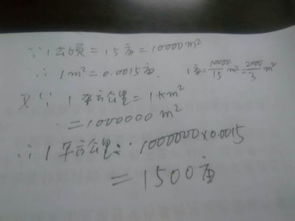 ∵ 1公顷 = 15亩 = 10000m²
∴ 1m² = 0.0015亩. 1亩 = 10000/15 m² = 2000/3 m²
又∵ 1平方公里 = 1Km²
= 1000000m²
∴ 1平方公里 = 1000000×0.0015
= 1500亩